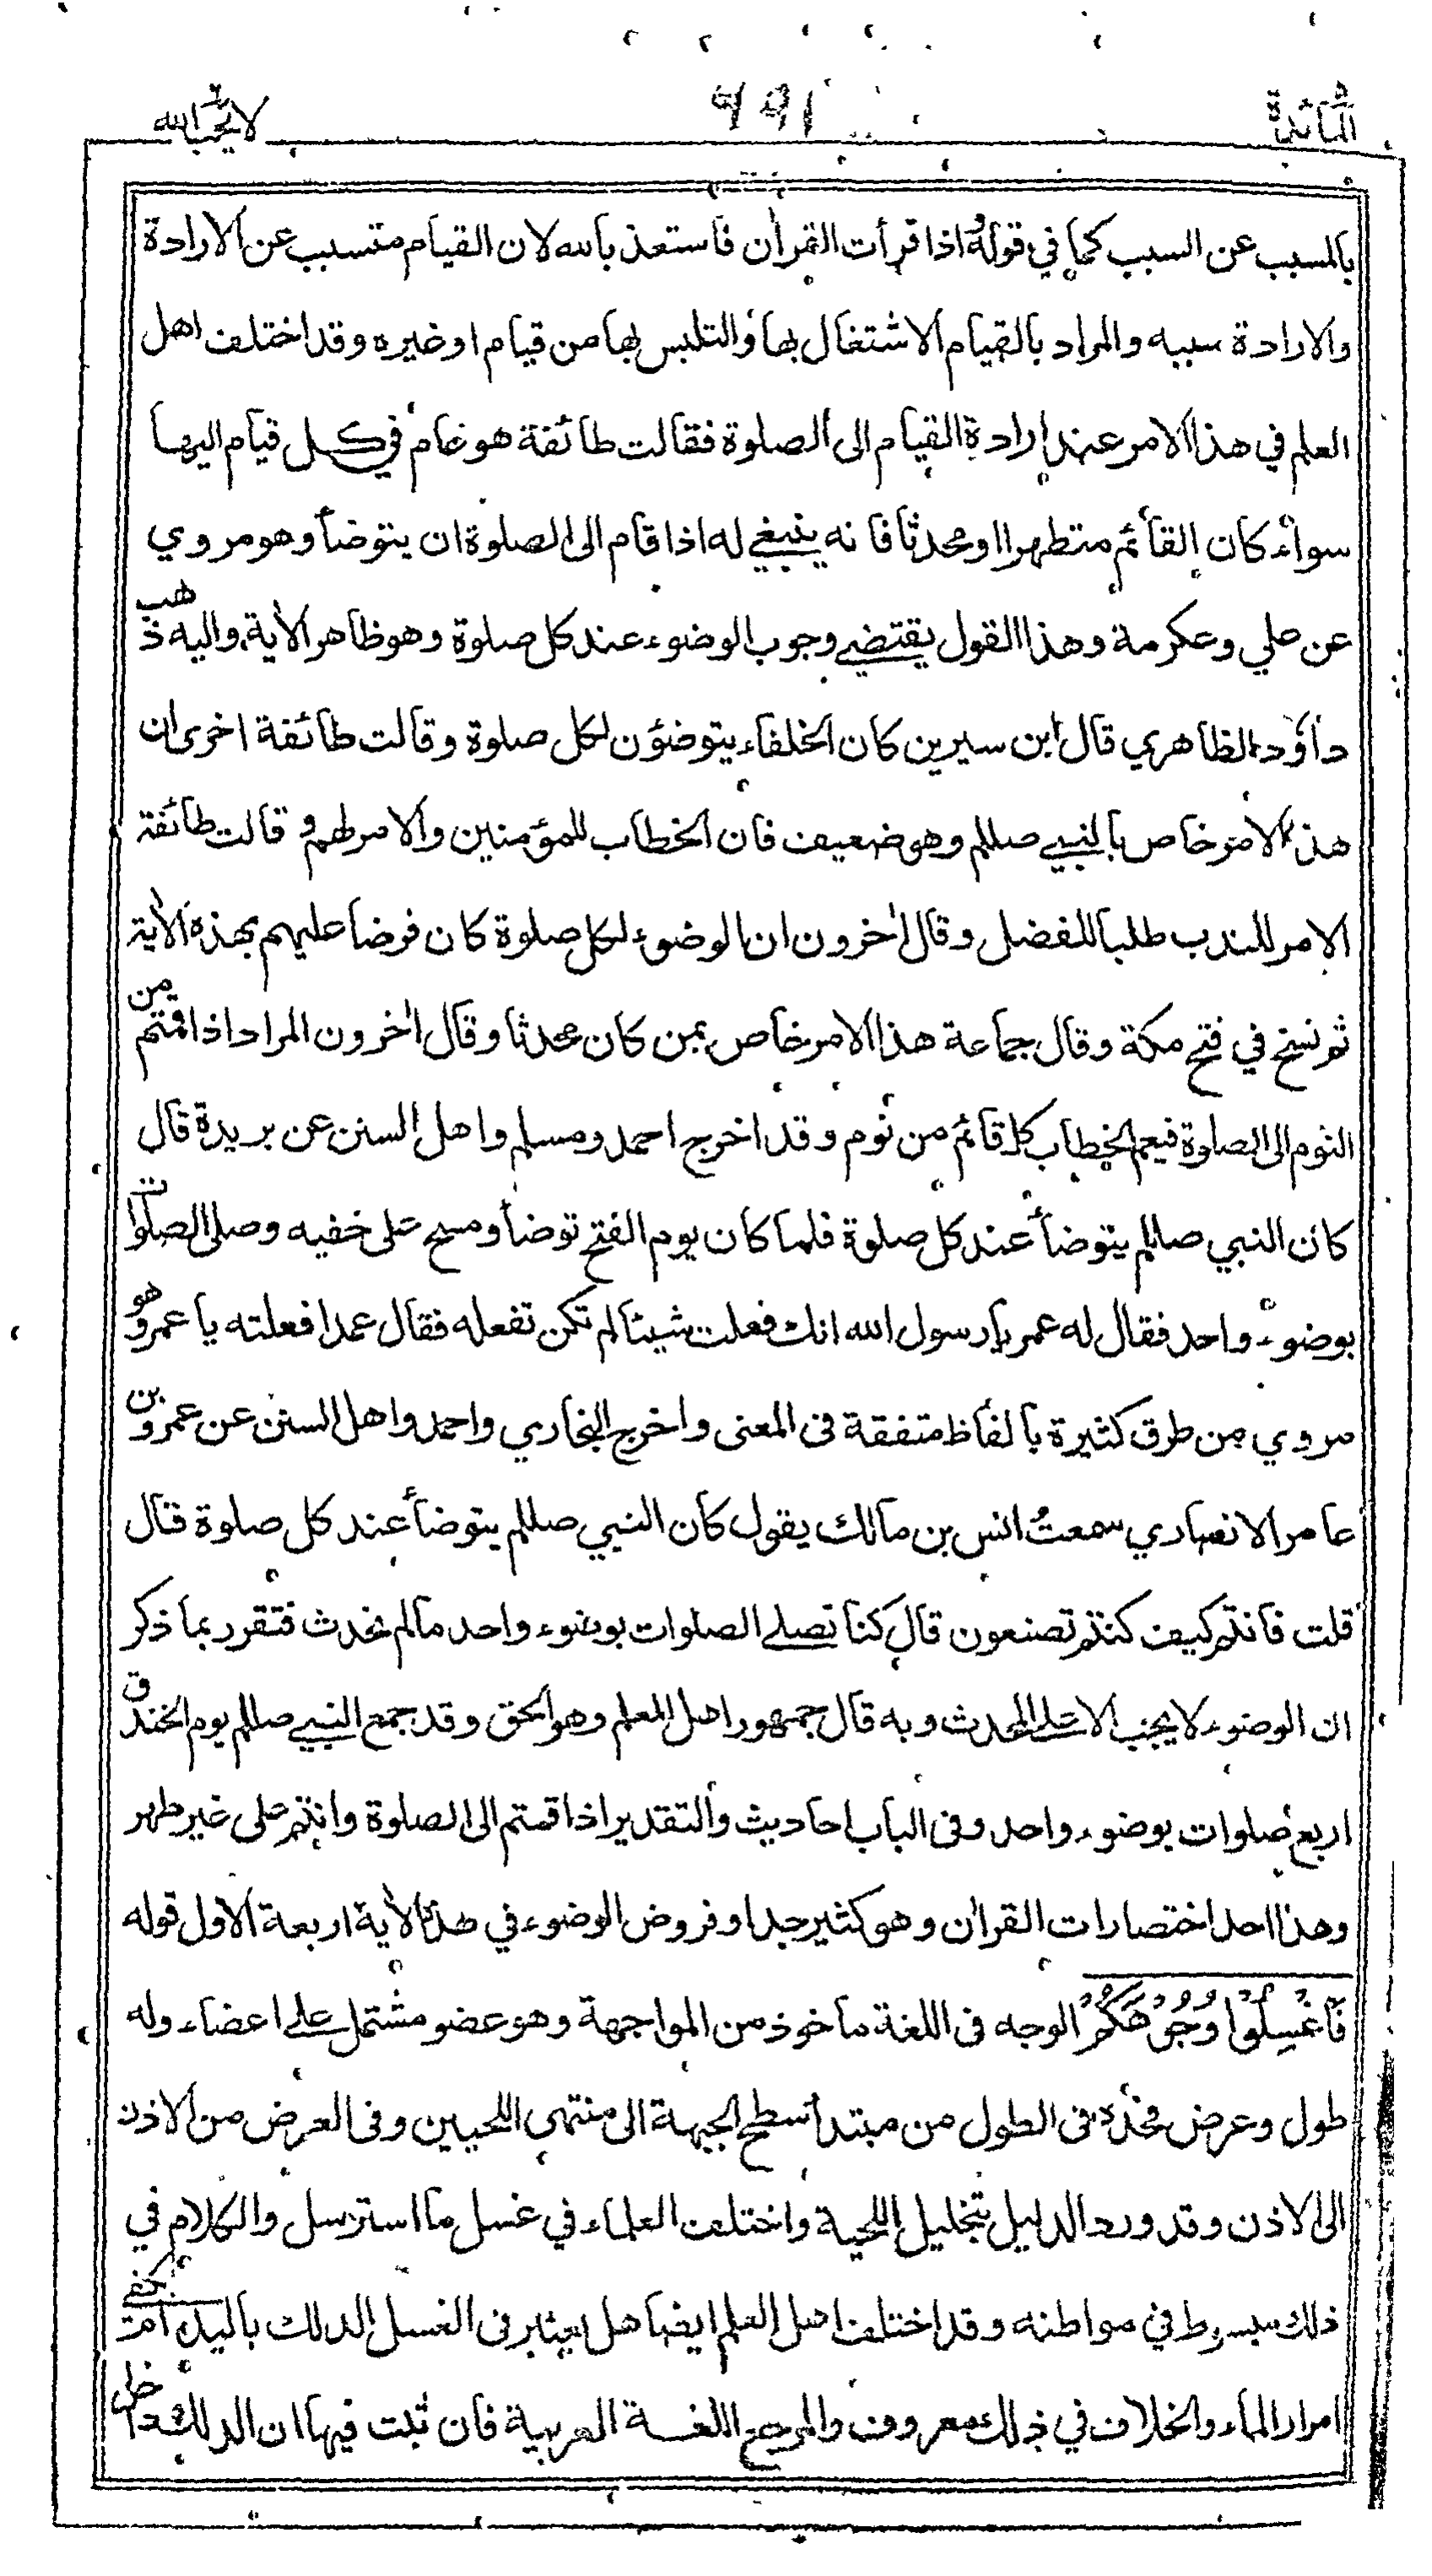 المائدة ٦٩١ لا يحب الله
بالمسبب عن السبب كما في قوله اذا قرأت القرأن فاستعذ بالله لان القيام متسبب عن الارادة
والارادة سببه والمراد بالقيام الاشتغال بها والتلبس بها من قيام او غيره وقد اختلف اهل
العلم في هذا الامر عند ارادة القيام الى الصلوة فقالت طائفة هو عام في كل قيام اليها
سواء كان القائم متطهرا او محدثا فانه ينبغي له اذا قام الى الصلوة ان يتوضأ وهو مروي
عن علي وعكرمة وهذا القول يقتضي وجوب الوضوء عند كل صلوة وهو ظاهر الأية واليه ذهب
داؤد الظاهري قال ابن سيرين كان الخلفاء يتوضئون لكل صلوة وقالت طائفة اخرى ان
هذا الامر خاص بالنبي صللم وهو ضعيف فان الخطاب للمؤمنين والامر لهم وقالت طائفة
الامر للندب طلبا للفضل وقال أخرون ان الوضوء لكل صلوة كان فرضا عليهم بهذه الأية
ثم نسخ في فتح مكة وقال جماعة هذا الامر خاص بمن كان محدثا وقال أخرون المراد اذا قمتم من
النوم الى الصلوة فيعم الخطاب كل قائم من نوم وقد اخرج احمد ومسلم واهل السنن عن بريدة قال
كان النبي صللم يتوضأ عند كل صلوة فلما كان يوم الفتح توضأ ومسح على خفيه وصلى الصلوات
بوضوء واحد فقال له عمر يا رسول الله انك فعلت شيئا لم تكن تفعله فقال عمدا فعلته يا عمر وهو
مروي من طرق كثيرة بالفاظ متفقة في المعنى واخرج البخاري واحمد واهل السنن عن عمرو بن
عامر الانصاري سمعت انس بن مالك يقول كان النبي صللم يتوضأ عند كل صلوة قال
قلت فانتم كيف كنتم تصنعون قال كنا نصلي الصلوات بوضوء واحد ما لم نحدث فتقرر بما ذكر
ان الوضوء لا يجب الا على المحدث وبه قال جمهور اهل العلم وهو الحق وقد جمع النبي صللم يوم الخندق
اربع صلوات بوضوء واحد وفي الباب احاديث والتقدير اذا قمتم الى الصلوة وانتم على غير طهر
وهذا احد اختصارات القرأن وهو كثير جدا وفروض الوضوء في هذه الأية اربعة الاول قوله
فَاغْسِلُوْا وُجُوْهَكُمْ الوجه في اللغة ماخوذ من المواجهة وهو عضو مشتمل على اعضاء وله
طول وعرض فحده في الطول من مبتدأ سطح الجبهة الى منتهى اللحيين وفي العرض من الاذن
الى الاذن وقد ورد الدليل بتخليل اللحية واختلف العلماء في غسل ما استرسل والكلام في
ذلك مبسوط في مواطنه وقد اختلف اهل العلم ايضا هل يعتبر في الغسل الدلك باليد ام يكفي
امرار الماء والخلاف في ذلك معروف والمرجع اللغة العربية فان ثبت فيها ان الدلك داخل